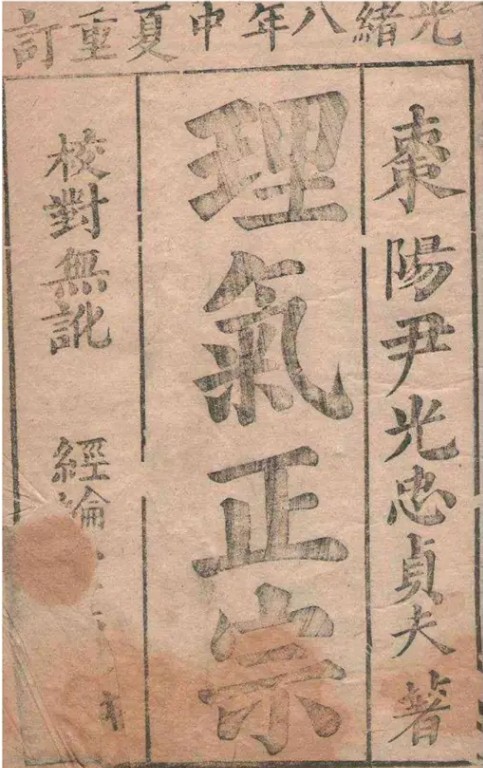 光緒八年中夏重訂
棗陽尹光忠貞夫著
理氣正宗
校對無訛 經論